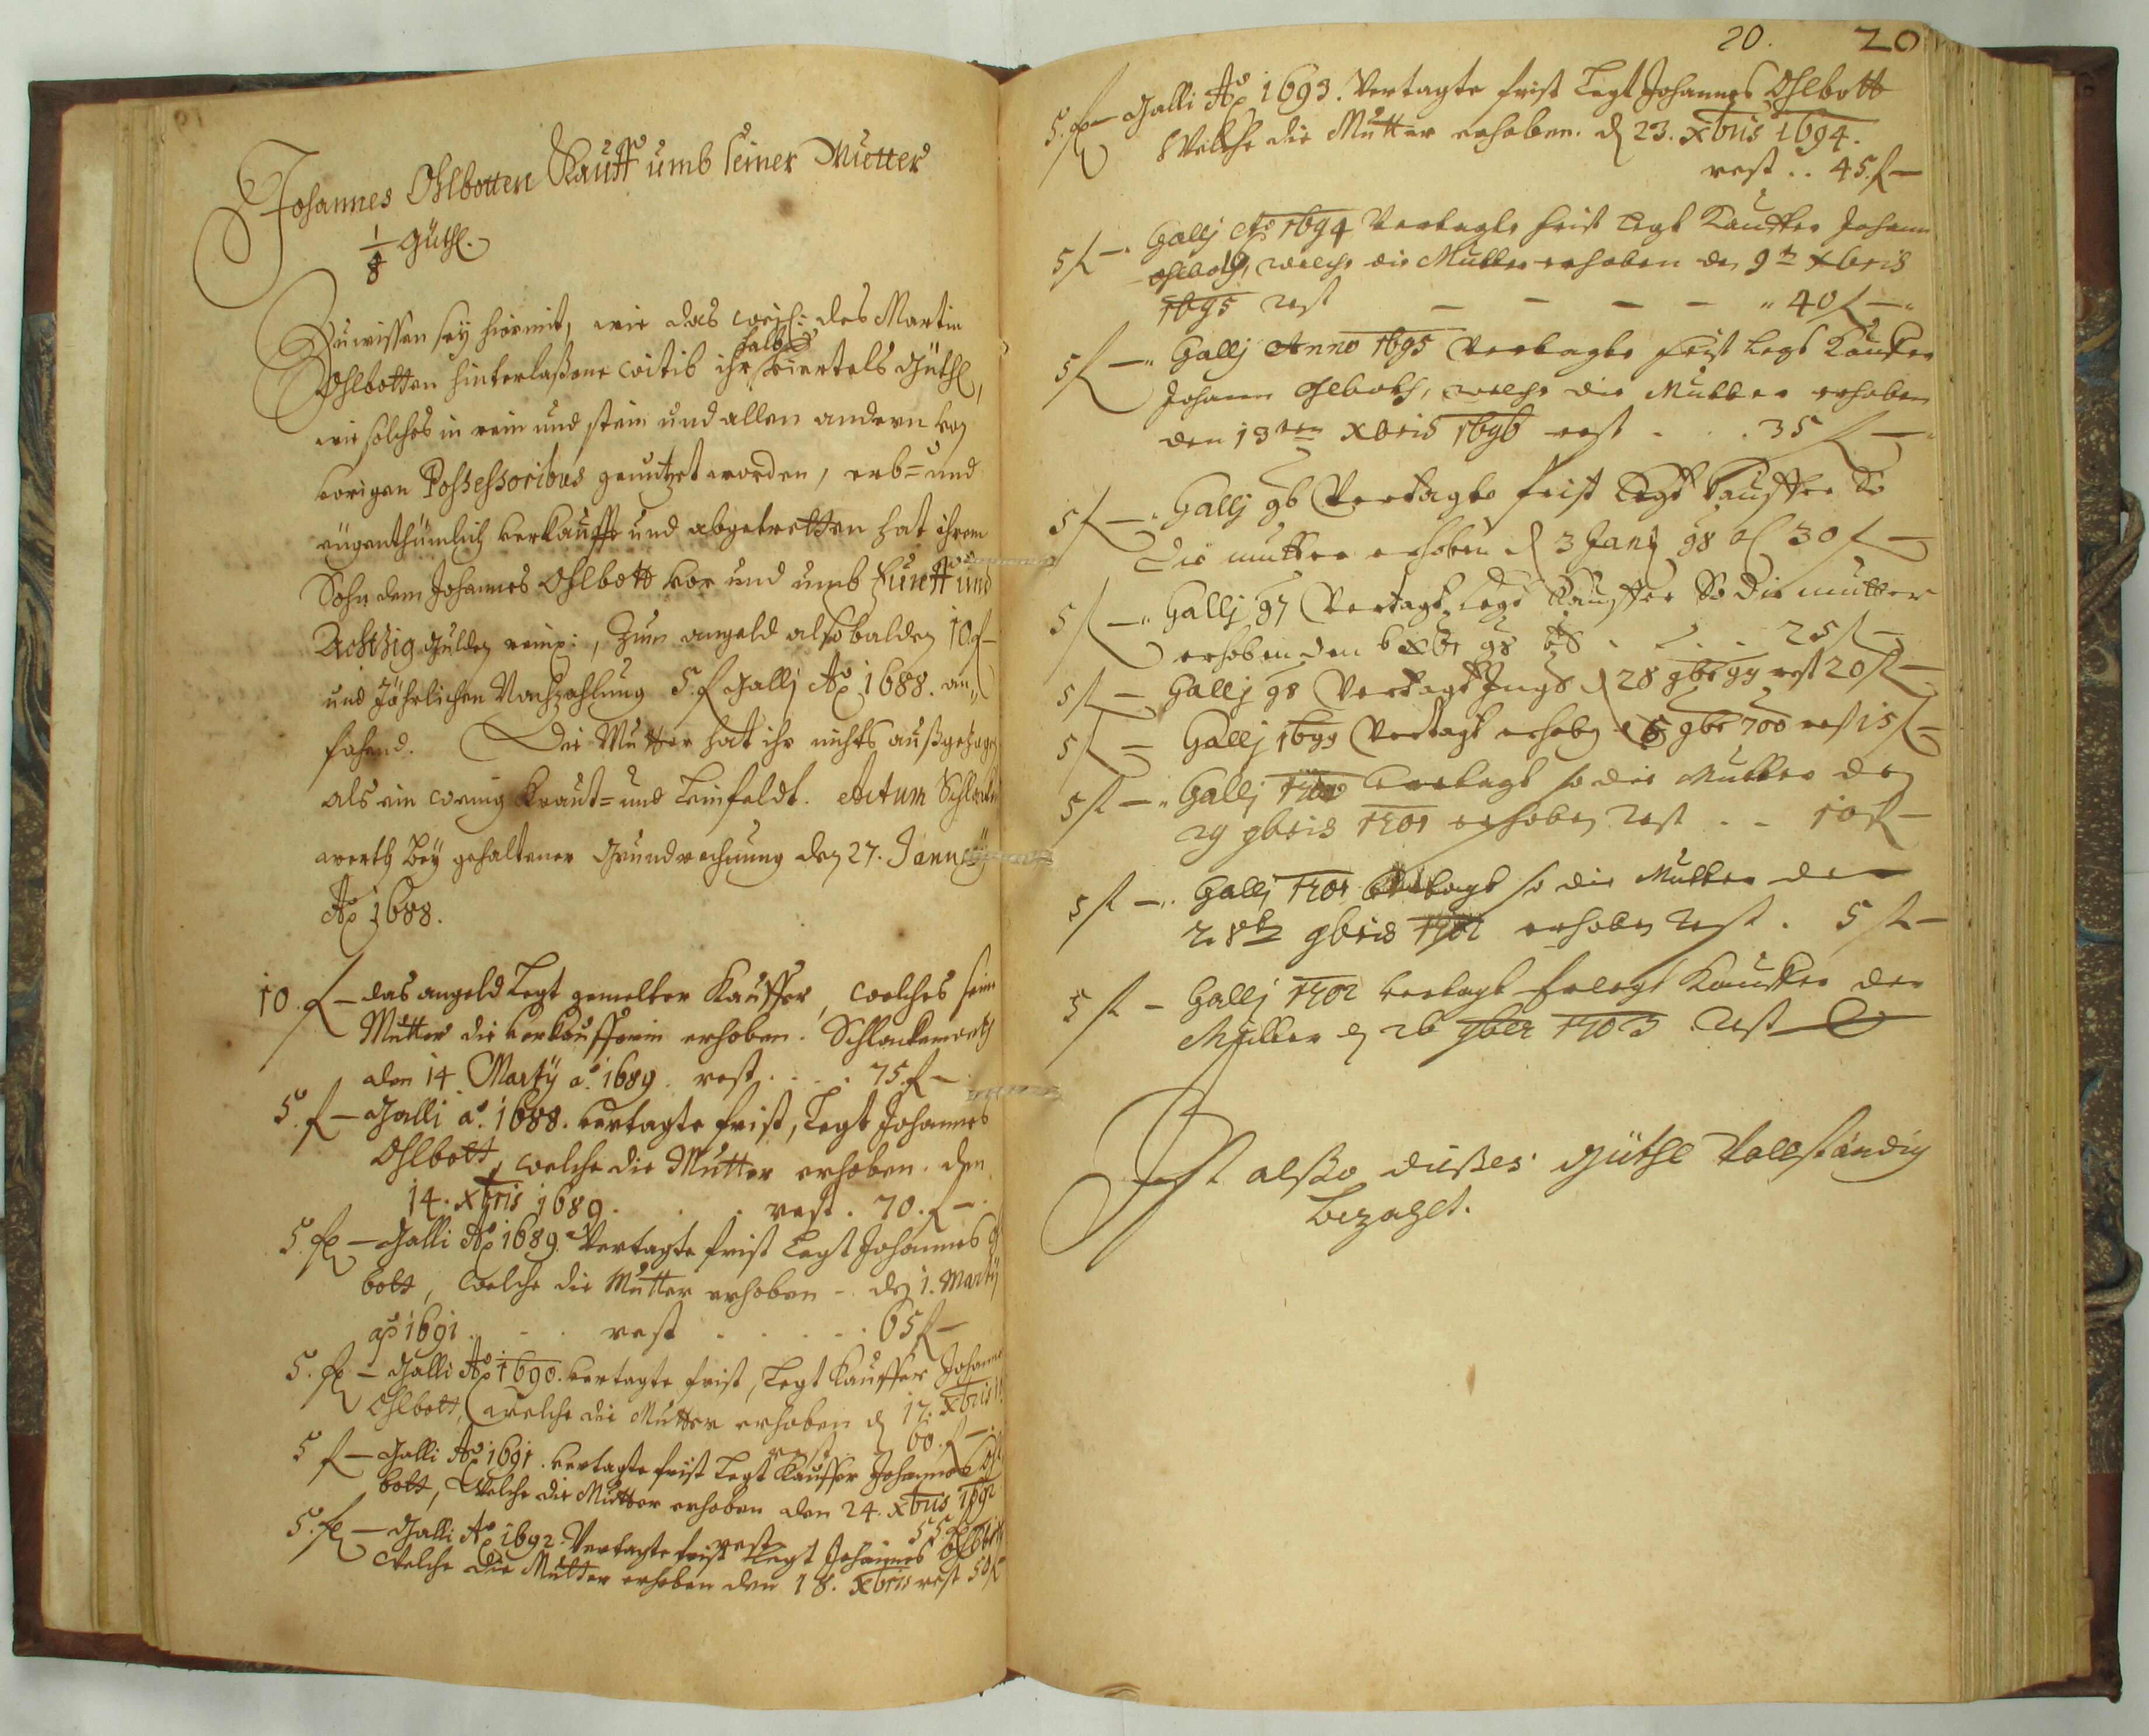 Johannes Ohlbotten Kauff umb seiner Mutter
1/8 Güthl.
Zuwissen sey hiermit, wie das weyl: des Martin
Ohlbotten hinterlaßene witib ihr halbes viertels Güthl,
wie solches in rein und stein und allen andern von
vorigen Possessoribus genutzet worden, erb= und
eigenthümlich verkaufft und abgetretten hat ihrem
Sohn dem Johannes Ohlbott vor und umb Fünff und
Achtzig Gulden reinß:, Zum angeld alsobalden 10 f
und Jährlichen Nachzahlung 5. f Gallj Aõ 1688. an„
fahend. Die Mutter hat ihr nichts außgezogen
als ein wenig Kraut= und Leinfeldt. Actum Schlacken
werth bey gehaltener Grundrechnung den 27. January
Aõ 1688.
10. f — das angeld Legt gemelter Kauffer, welches seine
Mutter die verkaufferin erhoben. Schlackenwerth
den 14 Martÿ aõ. 1689. rest . . . . 75. f —
5. f — Galli aõ. 1688. vertagte frist, Legt Johannes
Ohlbott, welche die Mutter erhoben. den
14. xbris 1689. . . . rest . 70. f —
5. f — Galli Aõ 1689. Vertagte frist Legt Johannes Ohl
bott, welche die Mutter erhoben - den 1. Martÿ
aõ 1691 . . . rest . . . . . 65 f —
5. f — Galli Aõ 1690. vertagte frist, Legt Kauffer Johannes
Ohlbott, welche die Mutter erhoben d 17. xbris
rest 60. f —
5 f — Galli Aõ 1691. vertagte frist Legt Kauffer Johannes Ohl
bott, Welche die Mutter erhoben den 24. xbris 1692
rest 55 f
5. f — Galli Aõ 1692. Vertagte frist Legt Johannes Ohlbott
Welche die Mutter erhoben den 18. xbris rest 50 f
20. 20
5. f — Galli Aõ 1693. Vertagte frist Legt Johannes Ohlbott
Welche die Mutter erhoben. d 23. xbris 1694.
rest . . 45. f —
5 f — „ Gallj Aõ 1694 Vertagte frist legt Kauffer Johann
Ohlboth, welche die Mutter erhoben den 9ten xbris
1695 rest — — — — „ 40 f — „
5 f — „ Gallj Anno 1695 Vertagte frist legt Kauffer
Johann Ohlboth, welche die Mutter erhoben
den 13ten xbris 1696 rest . . . 35 f — „
5 f — „ Gallj 96 Vertagte frist Legt Kauffer So
die mutter erhoben d 3 Janj 98 30 f —
5 f — „ Gallj 97 Vertagt Legt Kauffer So die mutter
erhoben den 6 xbr 98 . . . 25 f —
5 f — Gallj 98 Vertagt d 28 9br 99 rest 20 f —
5 f — Gallj 1699 Vertagt erhoben 9br 700 rest 15 f —
5 f — „ Gallj 1700 vertagt so die Mutter den
29 9bris 1701 erhoben rest . . 10 f —
5 f — „ Gallj 1701 vertagt so die Mutter den
9bris 1702 erhoben rest . 5 f —
5 f — Gallj 1702 vertagt erlegt Kauffer der
Mutter d 26 9ber 1703 rest 0
Ist alßo dießes Güthl Vollständig
bezahlt.